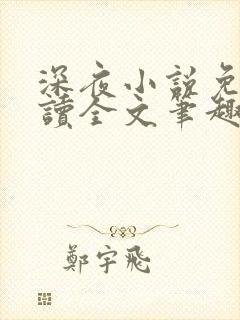 深夜小說免
讀全文筆趣
鄭宇飛